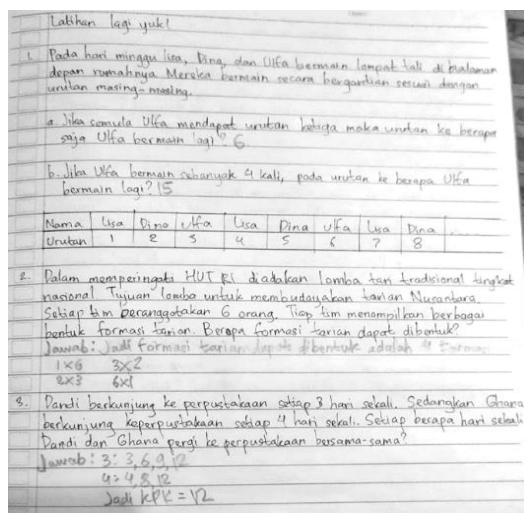 Latihan lagi yuk!
1. Pada hari minggu lisa, Dina, dan Ulfa bermain lompat tali di halaman
depan rumahnya Mereka bermain secara bergantian sesuai dengan
urutan masing-masing.
a. Jika semula Ulfa mendapat urutan ketiga maka urutan ke berapa
saja Ulfa bermain lagi? 6
b. Jika Ulfa bermain sebanyak 4 kali, pada urutan ke berapa Ulfa
bermain lagi? 15
Nama Lisa Dina Ulfa Lisa Dina Ulfa Lisa Dina ......
Urutan 1 2 3 4 5 6 7 8
2. Dalam memperingati HUT RI diadakan lomba tari tradisional tingkat
nasional Tujuan lomba untuk membudayakan tarian Nusantara.
Setiap tim beranggotakan 6 orang. Tiap tim menampilkan berbagai
bentuk formasi tarian. Berapa formasi tarian dapat dibentuk?
Jawab: Jadi formasi tarian dapat dibentuk adalah 4 formasi
1x6 3x2
2x3 6x1
3. Dandi berkunjung ke perpustakaan setiap 3 hari sekali. Sedangkan Ghana
berkunjung keperpustakaan setiap 4 hari sekali. Setiap berapa hari sekali
Dandi dan Ghana pergi ke perpustakaan bersama-sama?
Jawab: 3: 3, 6, 9, 12
4= 4, 8, 12
Jadi KPK = 12